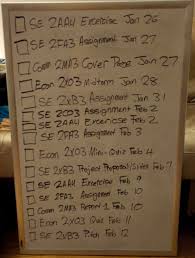 SE 2AA4 Excercise Jan 26
SE 2FA3 Assignment Jan 27
Comm 2MA3 Cover Page Jan 27
Econ 2X03 Midterm Jan 28
SE 2XB3 Assignment Jan 31
SE 2C03 Assignment Feb 2
SE 2AA4 Excercise Feb 2
SE 2FA3 Assignment Feb 3
Econ 2X03 Mini-Quiz Feb 4
SE 2XB3 Project Proposal/Slides Feb 7
SE 2AA4 Excercise Feb 9
SE 2FA3 Assignment Feb 10
Comm 2MA3 Report 1 Feb 10
Econ 2X03 Quiz Feb 11
SE 2XB3 Pitch Feb 12